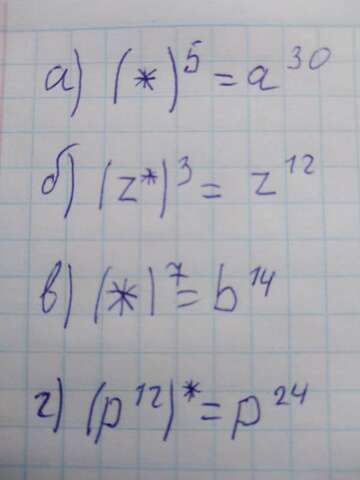 а) (*)⁵ = a³⁰
б) (z*)³ = z¹²
в) (*)⁷ = b¹⁴
г) (p¹²)* = p²⁴